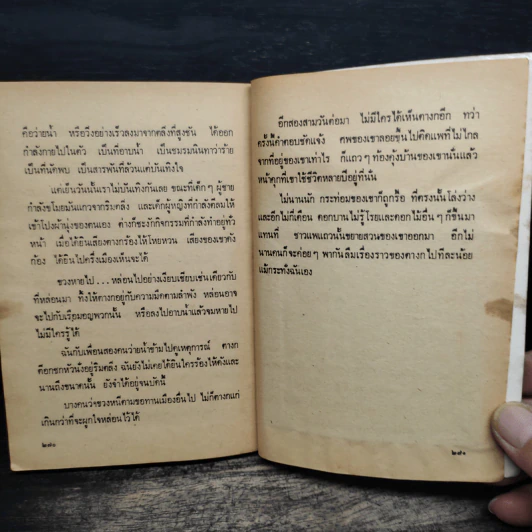 คือว่ายน้ำ หรือวิ่งอย่างเร็วลงมาจากตลิ่งที่สูงชัน ได้ออก
กำลังกายไปในตัว เป็นที่อาบน้ำ เป็นชมรมนินทาว่าร้าย
เป็นที่นัดพบ เป็นสารพันที่ล้วนแต่บันเทิงใจ
แต่เย็นวันนั้นเราไม่บันเทิงกันเลย ขณะที่เด็ก ๆ ผู้ชาย
กำลังขโมยมันแกวจากริมตลิ่ง และเด็กผู้หญิงที่กำลังตีลมให้
เข้าโปงผ้านุ่งของตนเอง ต่างก็ชะงักกิจกรรมที่กำลังทำอยู่ทั่ว
หน้า เมื่อได้ยินเสียงตางกร้องไห้โหยหวน เสียงของเขาดัง
ก้อง ได้ยินไปครึ่งเมืองเห็นจะได้
ชวงหายไป...หล่อนไปอย่างเงียบเชียบเช่นเดียวกับ
ที่หล่อนมา ทิ้งให้ตางกอยู่กับความมืดตามลำพัง หล่อนอาจ
จะไปกับเรือมอญพวกนั้น หรือลงไปอาบน้ำแล้วจมหายไป
ไม่มีใครรู้ได้
ฉันกับเพื่อนสองคนว่ายน้ำข้ามไปดูเหตุการณ์ ตางก
ตีอกชกหัวนั่งอยู่ริมตลิ่ง ฉันยังไม่เคยได้ยินใครร้องไห้ดังและ
นานถึงขนาดนั้น ยังจำได้อยู่จนบัดนี้
บางคนว่าชวงหนีตามขอทานเมืองอื่นไป ไม่ก็ตางกแก่
เกินกว่าที่จะผูกใจหล่อนไว้ได้
๒๗๐
อีกสองสามวันต่อมา ไม่มีใครได้เห็นตางกอีก ทว่า
ครั้งนี้คำตอบชัดแจ้ง ศพของเขาลอยขึ้นไปติดแพที่ไม่ไกล
จากที่อยู่ของเขาเท่าไร ก็แถว ๆ ท้องคุ้งบ้านของเขานั่นแล้ว
หน้าคุกที่เขาใช้ชีวิตหลายปีอยู่ที่นั่น
ไม่นานนัก กระท่อมของเขาก็ถูกรื้อ ที่ตรงนั้นโล่งว่าง
และอีกไม่กี่เดือน ดอกบานไม่รู้โรยและดอกไม้อื่น ๆ ก็ขึ้นมา
แทนที่ ชาวแพแถวนั้นขยายสวนของเขาออกมา อีกไม่
นานคนก็จะค่อย ๆ พากันลืมเรื่องราวของตางกไปทีละน้อย
แม้กระทั่งฉันเอง
๒๗๑